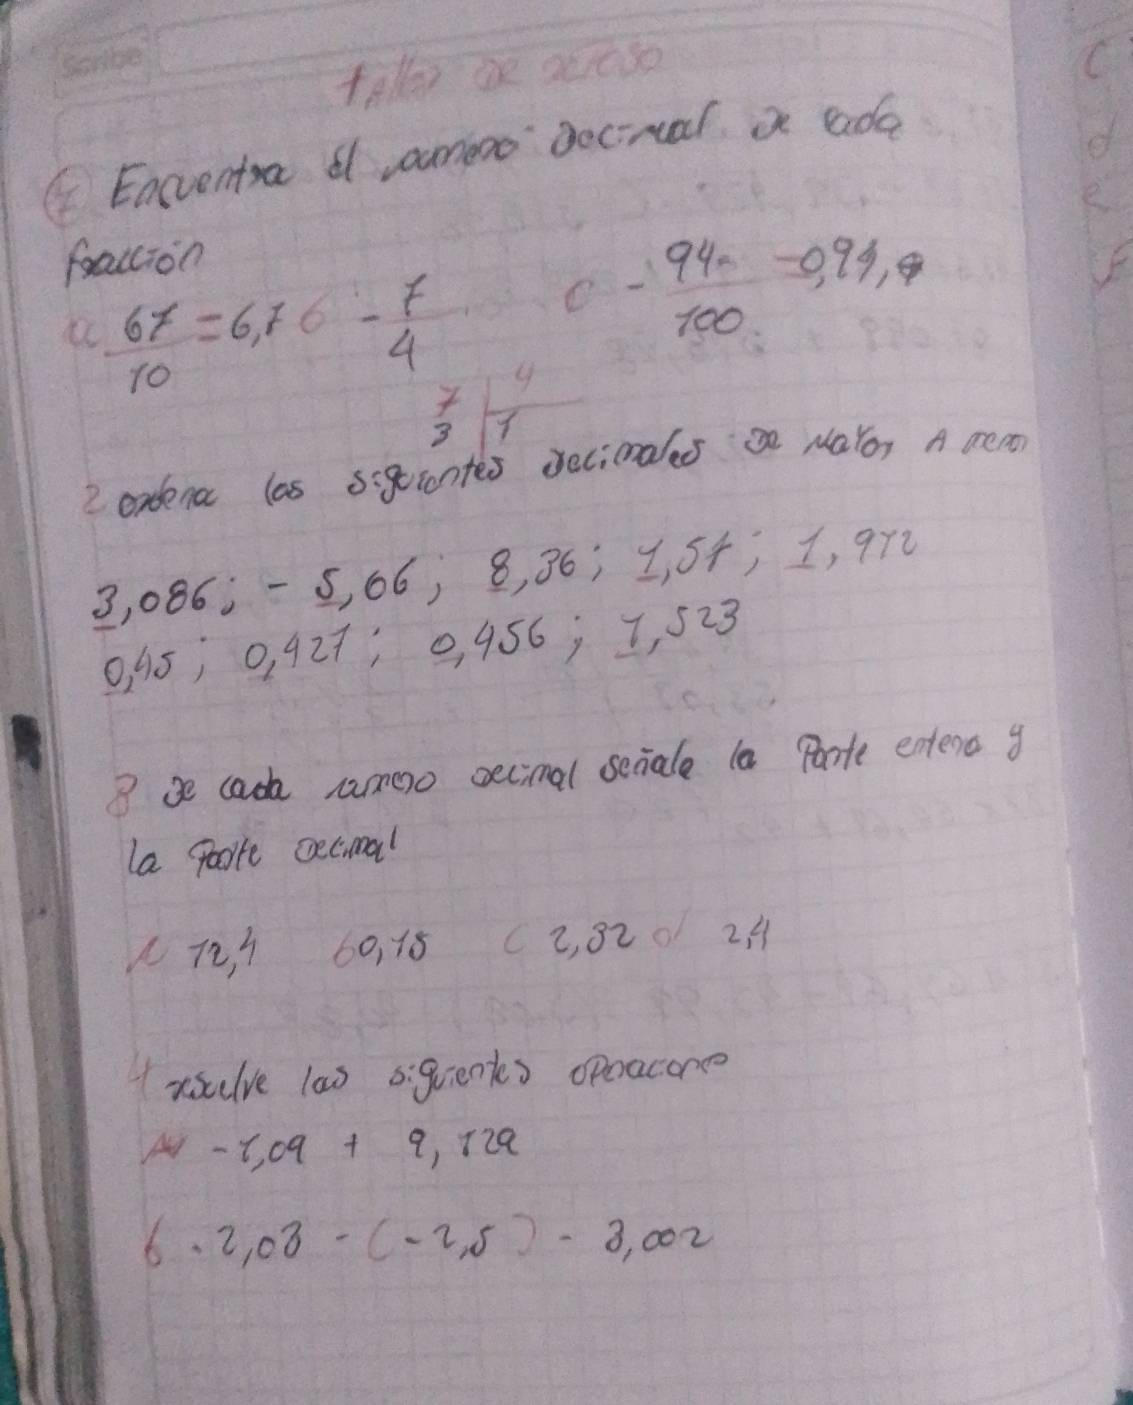 Scribe
Taller de repaso
1 Encuentra el numero decimal de cada
fracción
a 67/10 = 6,7 b - 7/4 c - 94/100 = 0,94,
7 | 4
3 | 1
2 ordena los siguientes decimales de Mayor A menor
3,086; - 5,06; 8,36; 1,57; 1,972
0,45; 0,427; 0,456; 1,523
3 de cada numero decimal señale la Parte entera y
la Parte decimal
A 12,4 b 0,15 c 2,32 d 2,4
4 resuelve las siguientes operaciones
A -1,09 + 9,129
b -2,03 - (-2,5) - 3,002
c
d
e
f